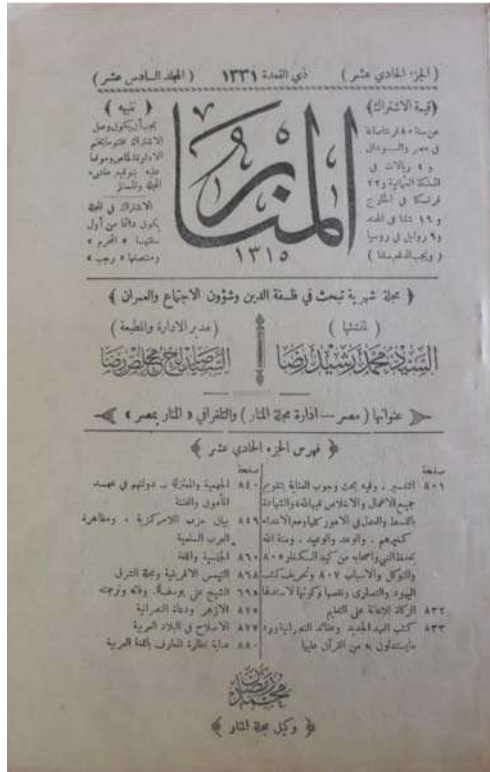 ( الجزء الحادي عشر ) ذي القعدة ١٣٣١ ( المجلد السادس عشر )
﴿ قيمة الاشتراك ﴾
عن سنة ٨٠ قرشا صاغا
في مصر والسودان
و ٤ ريالات في
المملكة العثمانية و ٢٢
فرنكا في الخارج
و ١٦ شلنا في الهند
و ٩ روابل في روسيا
( ويجب الدفع سلفا )
المنار
١٣١٥
﴿ تنبيه ﴾
يجب أن يكون وصل
الاشتراك مختوما بختم
الادارة الخاص وموقعا
عليه بتوقيع منشىء
المجلة والمستلم
الاشتراك في المجلة
يكون دائما من أول
سنتها « المحرم »
ومنتصفها « رجب »
﴿ مجلة شهرية تبحث في فلسفة الدين وشؤون الاجتماع والعمران ﴾
( لمنشئها )
السيد محمد رشيد رضا
( مدير الادارة والمطبعة )
السيد صالح مخلص رضا
عنوانها ( مصر — ادارة مجلة المنار ) والتلغرافي « المنار بمصر »
﴿ فهرس الجزء الحادي عشر ﴾
صفحة
٨٠١ التفسير . وفيه بحث وجوب العناية بتقويم
جميع الاعمال والاخلاص فيها لله والشهادة
بالقسط والعدل في الامور كلها ومع الاعداء
كغيرهم . والوعد والوعيد . ومنة الله
بحفظ النبي واصحابه من كيد السكفار ٨٠٥
والتوكل والاسباب ٨٠٧ وتحريف كتب
اليهود والنصارى ونقصها وكونها لا سند لها
٨٣٢ الزكاة للاعانة على التعليم
٨٣٣ كتب العهد الجديد وعقائد النصرانية ورد
مايستدلون به من القرآن عليها
صفحة
٨٤٠ الجهمية والمعتزلة - دولتهم في عهد
المأمون والفتنة
٨٤٩ بيان حزب اللامركزية . ومظاهرة
العرب السلمية
٨٦٠ الجنسية واللغة
٨٦٨ التيمس الافريقية ومجلة الشرق
الشيخ علي يوسف . وفاته وترجمته
٨٧٥ الازهر ودعاة النصرانية
٨٧٧ الاصلاح في البلاد العربية
٨٨٠ عناية نظارة المعارف باللغة العربية
محمد رمضان
﴿ وكيل مجلة المنار ﴾